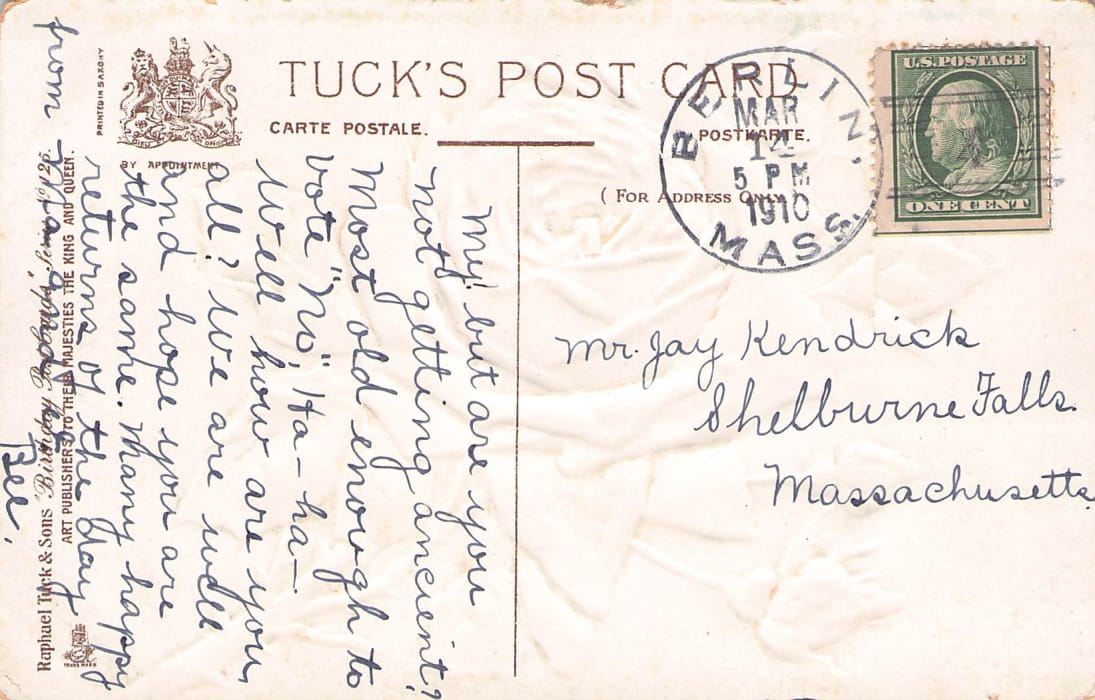 TUCK'S POST CARD
CARTE POSTALE.
POSTKARTE.
(For Address Only.
PRINTED IN SAXONY
BY APPOINTMENT
BERLIN,
MAR
14
5 PM
1910
MASS.
U.S. POSTAGE
ONE CENT
Mr. Jay Kendrick
Shelburne Falls.
Massachusetts.
My! but are you
not getting ancient?
Most old enough to
vote "No", Ha-ha-
Well how are you
all? We are well
and hope you are
the same. Many happy
returns of the day
from
Bee.
Raphael Tuck & Sons "Birthday Series No 126.
ART PUBLISHERS TO THEIR MAJESTIES THE KING AND QUEEN.
TRADE MARK